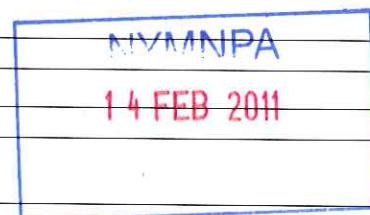 NYMNPA
14 FEB 2011